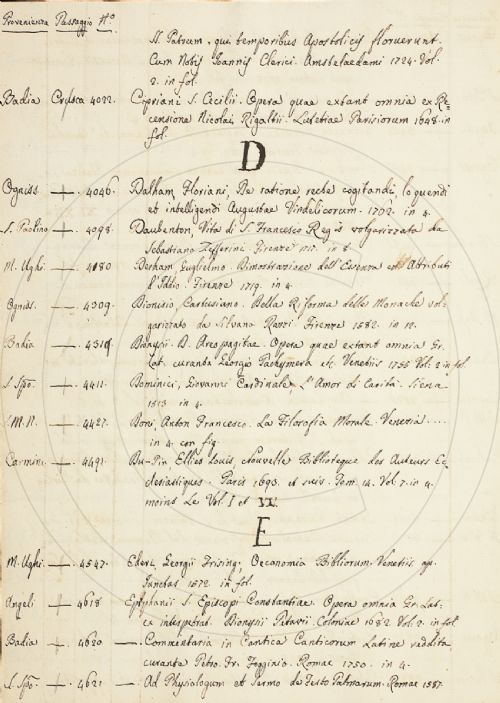 Provenienza Passaggio N.º
SS. Patrum, qui temporibus Apostolicis floruerunt.
Cum Notis Joannis Clerici. Amstelaedami 1724. Vol.
2. in fol.
Badia Crusca 4022. Cipriani S. Cecilii. Opera quae extant omnia ex Re-
censione Nicolai Rigaltii. Lutetiae Parisiorum 1648. in
fol.
D
Ogniss. 4046. Dalham, Floriani, De ratione recte cogitandi, loquendi
et intelligendi Augustae Vindelicorum. 1762. in 4.
S. Paolino 4098. Daubenton, Vita di S. Francesco Regis volgarizzata da
Sebastiano Zefferini. Firenze 1717. in 8.
M. Ughi 4180 Derham, Guglielmo. Dimostrazione dell'Essenza ed Attributi
d'Iddio. Firenze 1719. in 4.
Ogniss. 4309. Dionisio, Cartusiano. Della Riforma delle Monache vol-
garizzato da Silvano Razzi. Firenze 1582. in 12.
Badia 4319. Dionysii. D. Areopagitae Opera quae extant omnia Gr.
Lat. curante Georgio Pachymera etc. Venetiis 1756 Vol. 2. in fol.
S. Spo. 4411. Dominici, Giovanni Cardinale, L'Amor di Carità. Siena
1513 in 4.
S.M.N. 4427. Doni, Anton Francesco. La Filosofia Morale. Venezia ....
in 4. con fig.
Carmine 4491. Du-Pin, Ellies Louis, Nouvelle Biblioteque des Auteurs Ec-
clesiastiques. Paris 1693. et suiv. Tom. 14. Vol. 7. in 4.
moins Le Vol. I et VI.
E
M. Ughi 4547. Ederi, Georgii Frising; Oeconomia Bibliorum. Venetiis ap.
Junctas 1572. in fol.
Angeli 4618 Epiphanii S. Episcopi Constantiae. Opera omnia Gr. Lat.
ex interprtat. Dionysii Petavii Coloniae 1682. Vol. 2. in fol.
Badia 4620 —. Commentaria in Cantica Canticorum Latine reddita,
curante Petro. Fr. Fogginio. Romae 1750. in 4.
S. Spo. 4621 —. Ad Physiologum et Sermo de Festo Palmarum. Romae 1587.